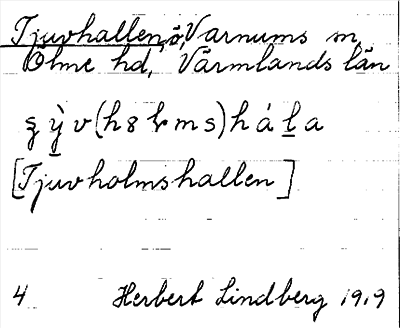 Tjuvhallen, ö, Varnums sn,
Ölme hd, Värmlands län
(h8lms)håla
[Tjuvholmshallen]
4 Herbert Lindberg 1919